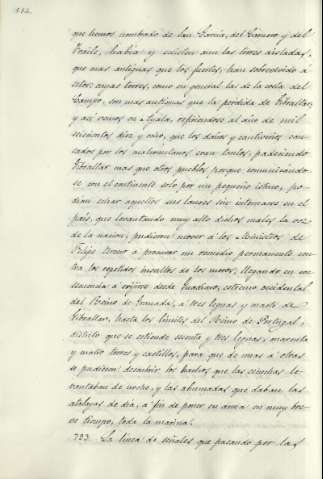 112.
que hemos nombrado de San García, del Carnero, y del
Fraile, había y existen aun las torres aisladas,
que mas antiguas que los fuertes, han sobrevivido á
estos: cuyas torres, como en general las de la costa del
Campo, son mas antiguas que la perdida de Gibraltar;
y así vemos en Ayala, refiriendose al año de mil
seiscientos diez y ocho, que los daños y cautiverios cau-
sados por los mahometanos eran tantos, padeciendo
Gibraltar mas que otros pueblos porque comunicándo-
se con el continente solo por un pequeño istmo, po-
dian echar aquellos sus lances sin internarse en el
pais, que levantando muy alto dichos males la voz
de la nacion, pudieron mover á los Ministros de
Felipe tercero á procurar un remedio permanente con-
tra los repetidos insultos de los moros; llegando en con-
secuencia á erijirse desde Guadiaro, estremo occidental
del Reino de Granada, á tres leguas y media de
Gibraltar, hasta los límites del Reino de Portugal,
distrito que se estiende sesenta y tres leguas, cuarenta
y cuatro torres y castillos, para que de unas á otras
se pudiesen descubrir los hachos que las centinelas le-
vantaban de noche, y las ahumadas que daban las
atalayas de dia, á fin de poner en arma en muy bre-
ve tiempo, toda la marina.
733 La línea de señales que pasando por las